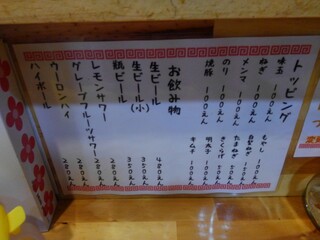 トッピング
味玉 100えん
ねぎ 100えん
メンマ 100えん
のり 100えん
焼豚 100えん
もやし 100えん
白髪ねぎ 100えん
たまねぎ 50えん
きくらげ 50えん
明太子 100えん
キムチ 100えん
お飲み物
生ビール 480えん
生ビール(小) 350えん
瓶ビール 350えん
レモンサワー 280えん
グレープフルーツサワー 280えん
ウーロンハイ 280えん
ハイボール 280えん